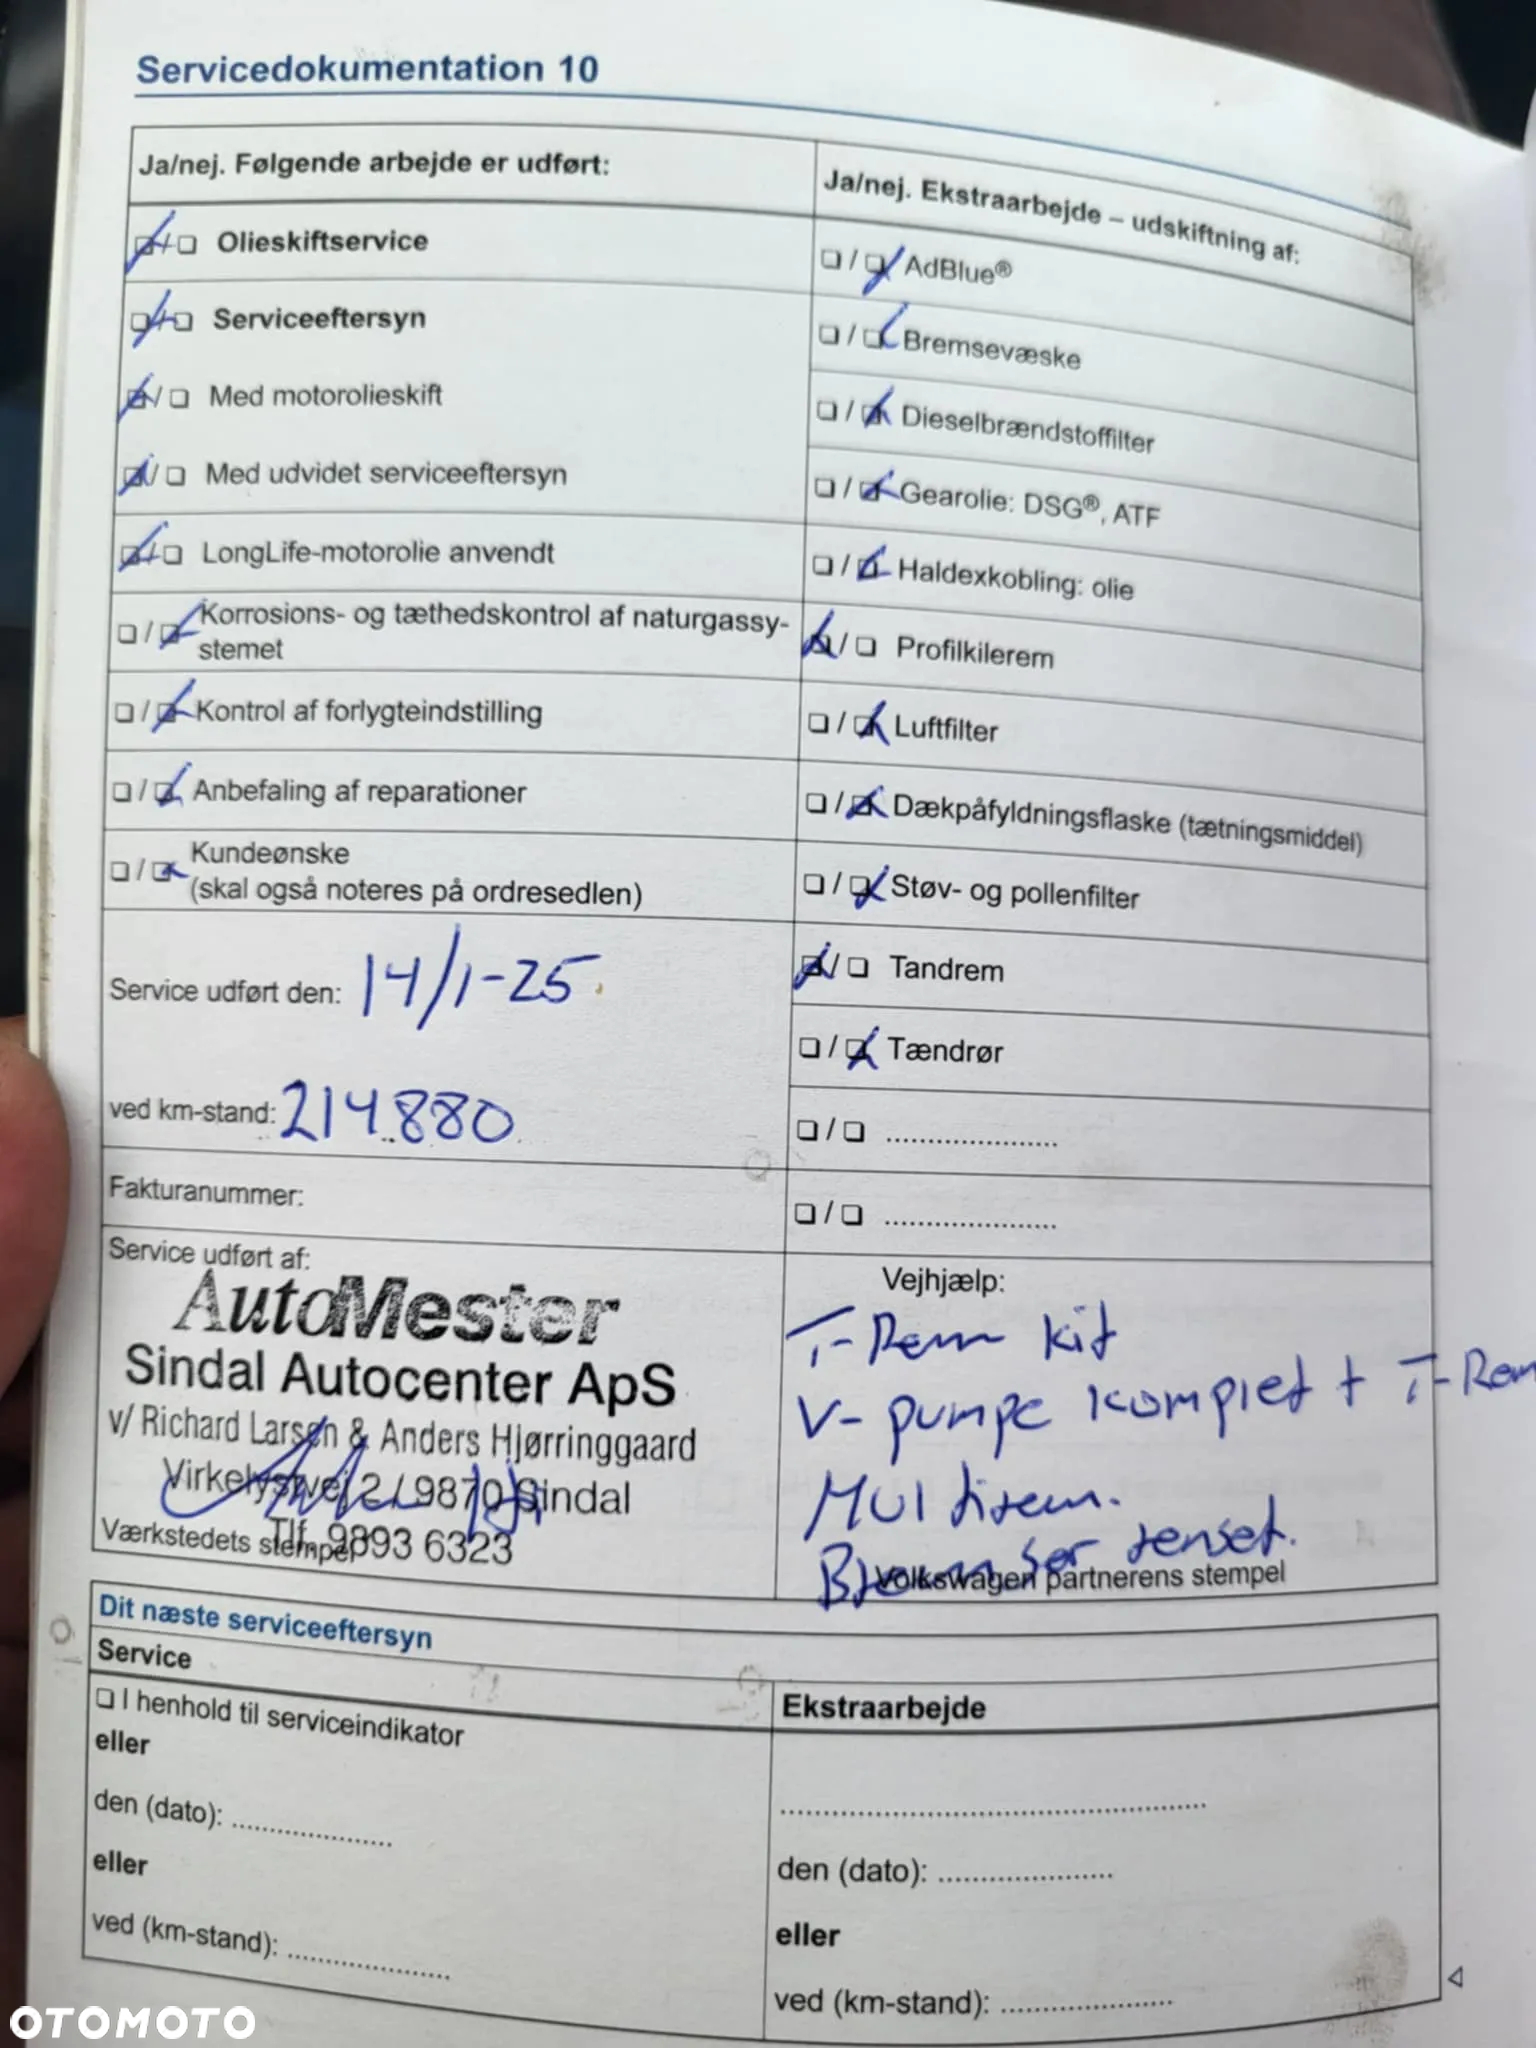 Servicedokumentation 10
Ja/nej. Følgende arbejde er udført:
☑/☐ Olieskiftservice
☑/☐ Serviceeftersyn
☑/☐ Med motorolieskift
☑/☐ Med udvidet serviceeftersyn
☑/☐ LongLife-motorolie anvendt
☐/☑ Korrosions- og tæthedskontrol af naturgassy-
stemet
☐/☑ Kontrol af forlygteindstilling
☐/☑ Anbefaling af reparationer
☐/☑ Kundeønske
(skal også noteres på ordresedlen)
Service udført den: 14/1-25
ved km-stand: 214.880
Fakturanummer:
Service udført af:
AutoMester
Sindal Autocenter ApS
v/ Richard Larsen & Anders Hjørringgaard
Virkelystvej 2 / 9870 Sindal
Tlf. 9893 6323
Værkstedets stempel
Ja/nej. Ekstraarbejde – udskiftning af:
☐/☑ AdBlue®
☐/☑ Bremsevæske
☐/☑ Dieselbrændstoffilter
☐/☑ Gearolie: DSG®, ATF
☐/☑ Haldexkobling: olie
☑/☐ Profilkilerem
☐/☑ Luftfilter
☐/☑ Dækpåfyldningsflaske (tætningsmiddel)
☐/☑ Støv- og pollenfilter
☑/☐ Tandrem
☐/☑ Tændrør
☐/☐ .....................
☐/☐ .....................
Vejhjælp:
T-Rem kit
V-pumpe komplet + T-Rem
Multirem.
Bremser renset.
Volkswagen partnerens stempel
Dit næste serviceeftersyn
Service
☐ I henhold til serviceindikator
eller
den (dato): ....................
eller
ved (km-stand): ....................
Ekstraarbejde
.....................................................
den (dato): .....................
eller
ved (km-stand): .....................
OTOMOTO